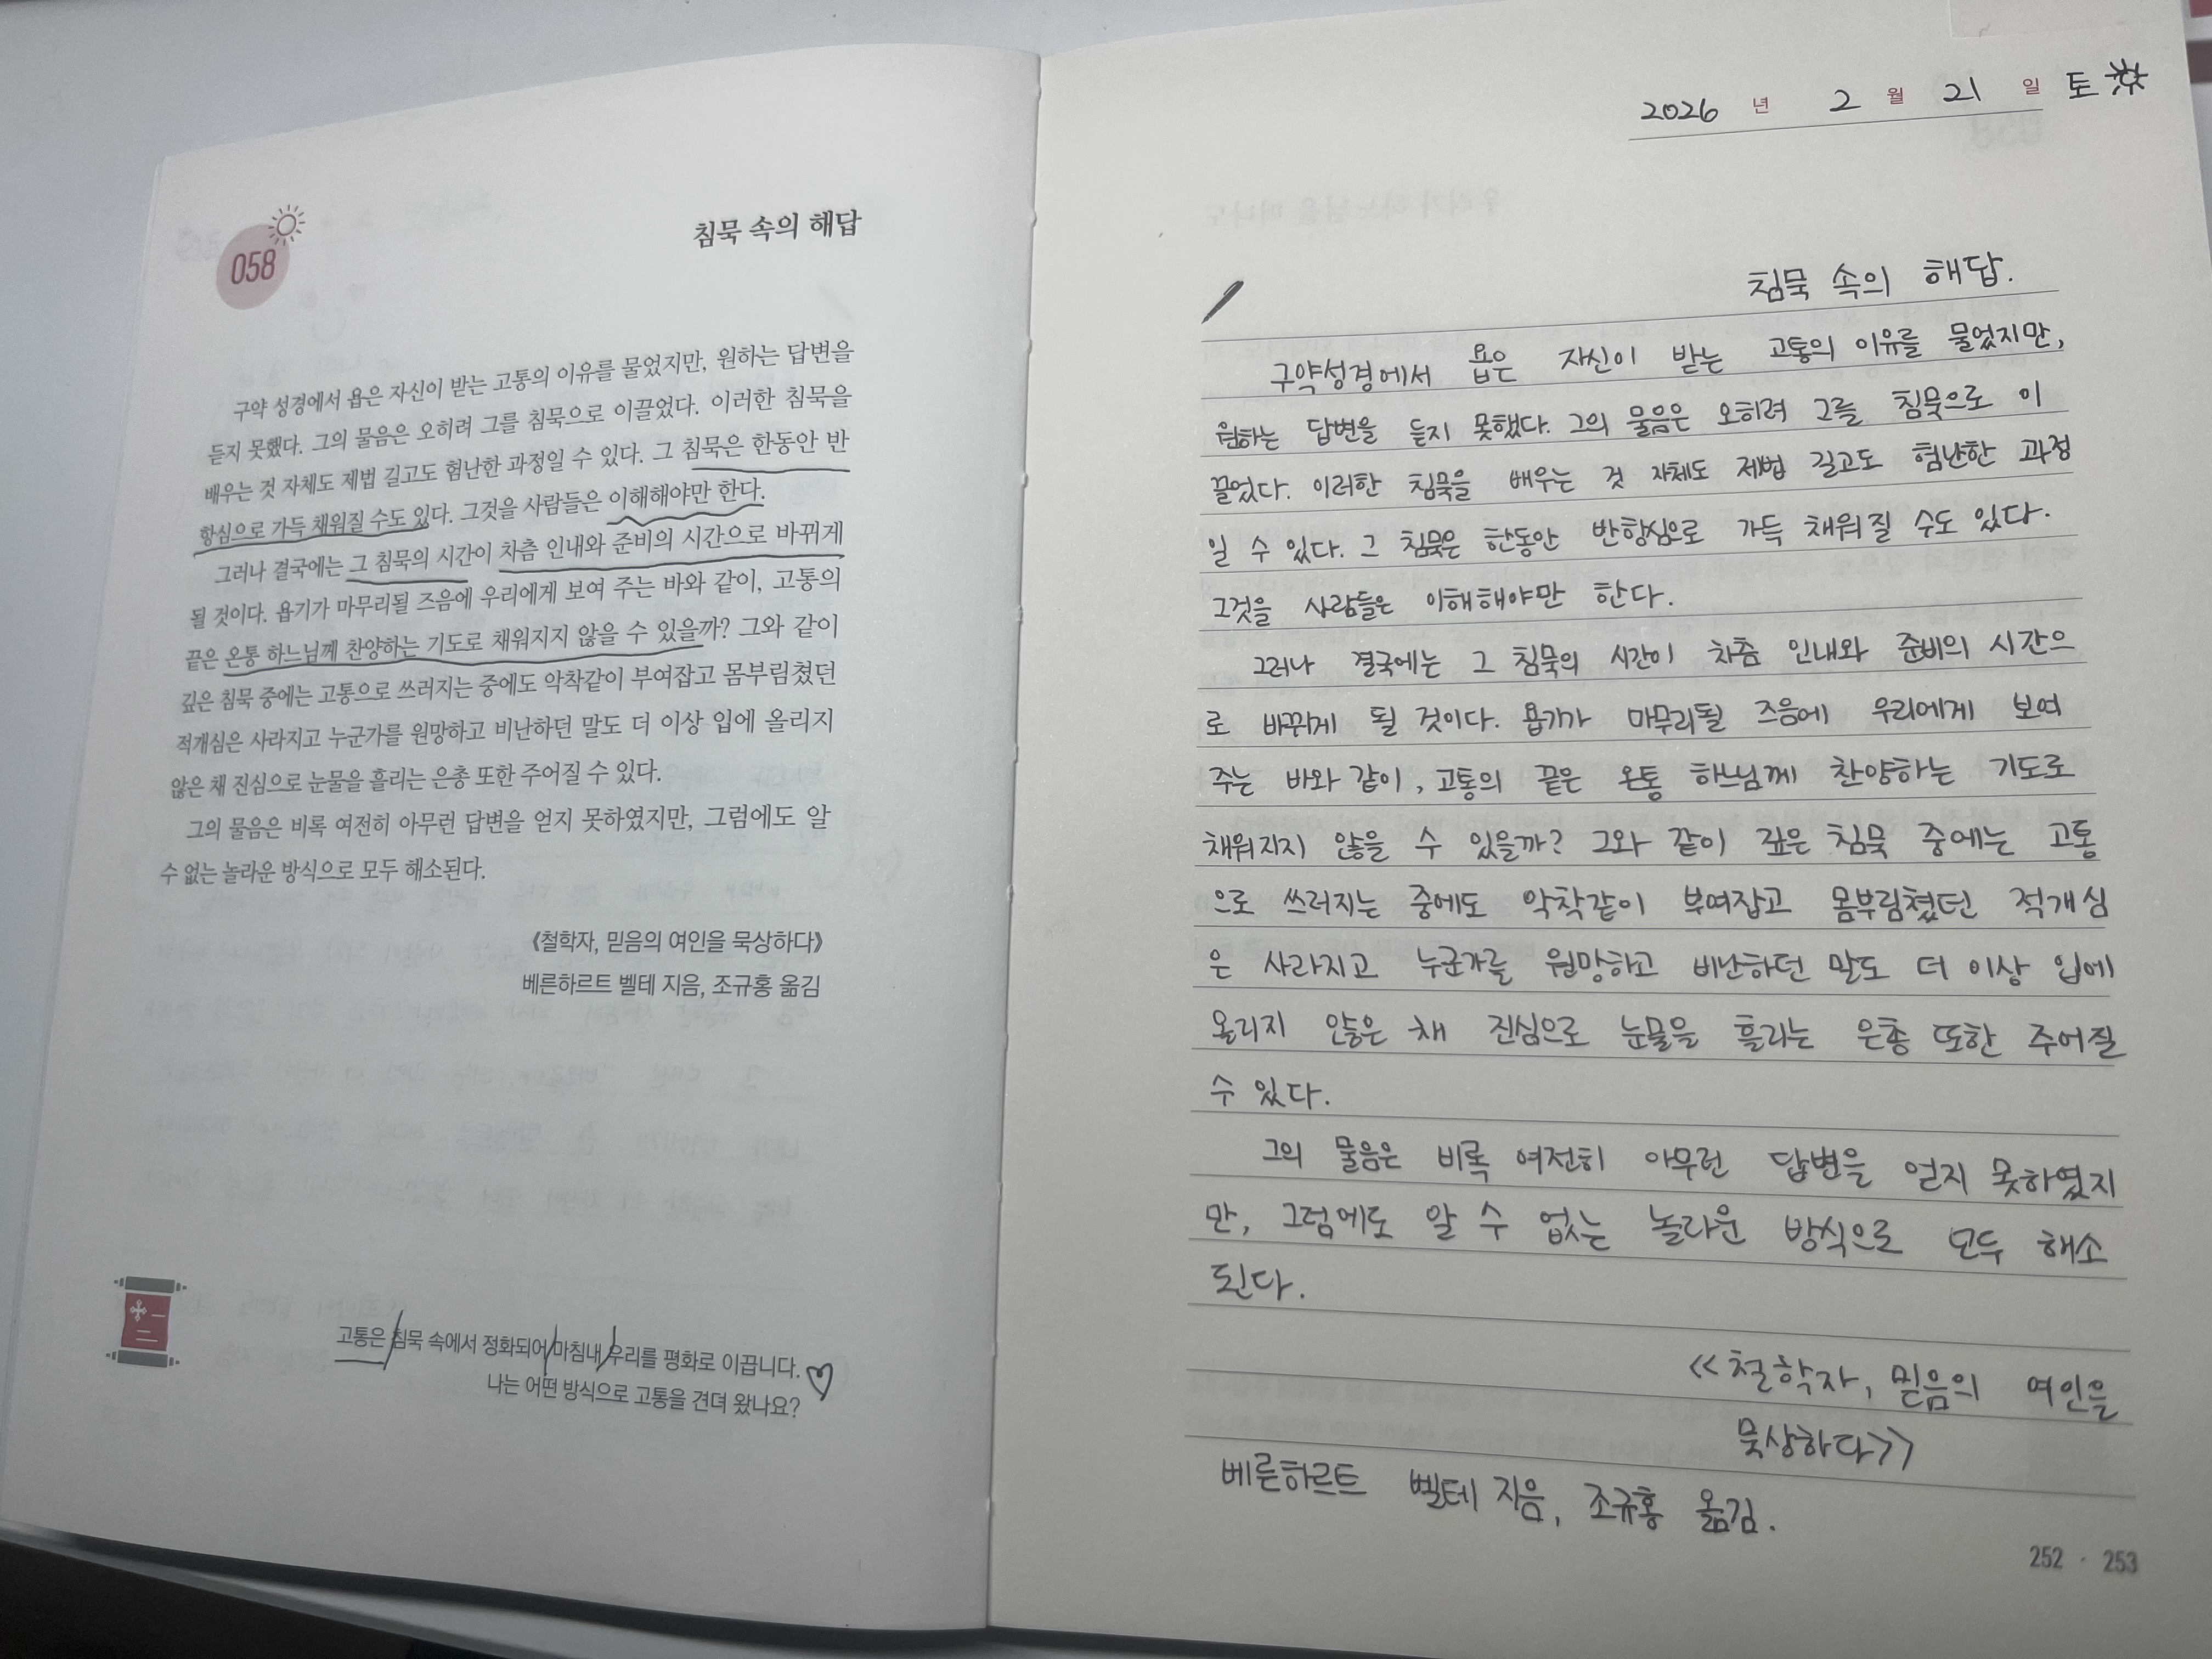 058
침묵 속의 해답
구약 성경에서 욥은 자신이 받는 고통의 이유를 물었지만, 원하는 답변을
듣지 못했다. 그의 물음은 오히려 그를 침묵으로 이끌었다. 이러한 침묵을
배우는 것 자체도 제법 길고도 험난한 과정일 수 있다. 그 침묵은 한동안 반
항심으로 가득 채워질 수도 있다. 그것을 사람들은 이해해야만 한다.
그러나 결국에는 그 침묵의 시간이 차츰 인내와 준비의 시간으로 바뀌게
될 것이다. 욥기가 마무리될 즈음에 우리에게 보여 주는 바와 같이, 고통의
끝은 온통 하느님께 찬양하는 기도로 채워지지 않을 수 있을까? 그와 같이
깊은 침묵 중에는 고통으로 쓰러지는 중에도 악착같이 부여잡고 몸부림쳤던
적개심은 사라지고 누군가를 원망하고 비난하던 말도 더 이상 입에 올리지
않은 채 진심으로 눈물을 흘리는 은총 또한 주어질 수 있다.
그의 물음은 비록 여전히 아무런 답변을 얻지 못하였지만, 그럼에도 알
수 없는 놀라운 방식으로 모두 해소된다.
《철학자, 믿음의 여인을 묵상하다》
베른하르트 벨테 지음, 조규홍 옮김
고통은 침묵 속에서 정화되어 마침내 우리를 평화로 이끕니다.
나는 어떤 방식으로 고통을 견뎌 왔나요?
2026 년 2 월 21 일 토
침묵 속의 해답.
구약성경에서 욥은 자신이 받는 고통의 이유를 물었지만,
원하는 답변을 듣지 못했다. 그의 물음은 오히려 그를 침묵으로 이
끌었다. 이러한 침묵을 배우는 것 자체도 제법 길고도 험난한 과정
일 수 있다. 그 침묵은 한동안 반항심으로 가득 채워질 수도 있다.
그것을 사람들은 이해해야만 한다.
그러나 결국에는 그 침묵의 시간이 차츰 인내와 준비의 시간으
로 바뀌게 될 것이다. 욥기가 마무리될 즈음에 우리에게 보여
주는 바와 같이, 고통의 끝은 온통 하느님께 찬양하는 기도로
채워지지 않을 수 있을까? 그와 같이 깊은 침묵 중에는 고통
으로 쓰러지는 중에도 악착같이 부여잡고 몸부림쳤던 적개심
은 사라지고 누군가를 원망하고 비난하던 말도 더 이상 입에
올리지 않은 채 진심으로 눈물을 흘리는 은총 또한 주어질
수 있다.
그의 물음은 비록 여전히 아무런 답변을 얻지 못하였지
만, 그럼에도 알 수 없는 놀라운 방식으로 모두 해소
된다.
《철학자, 믿음의 여인을
묵상하다》
베른하르트 벨테 지음, 조규홍 옮김.
252 · 253